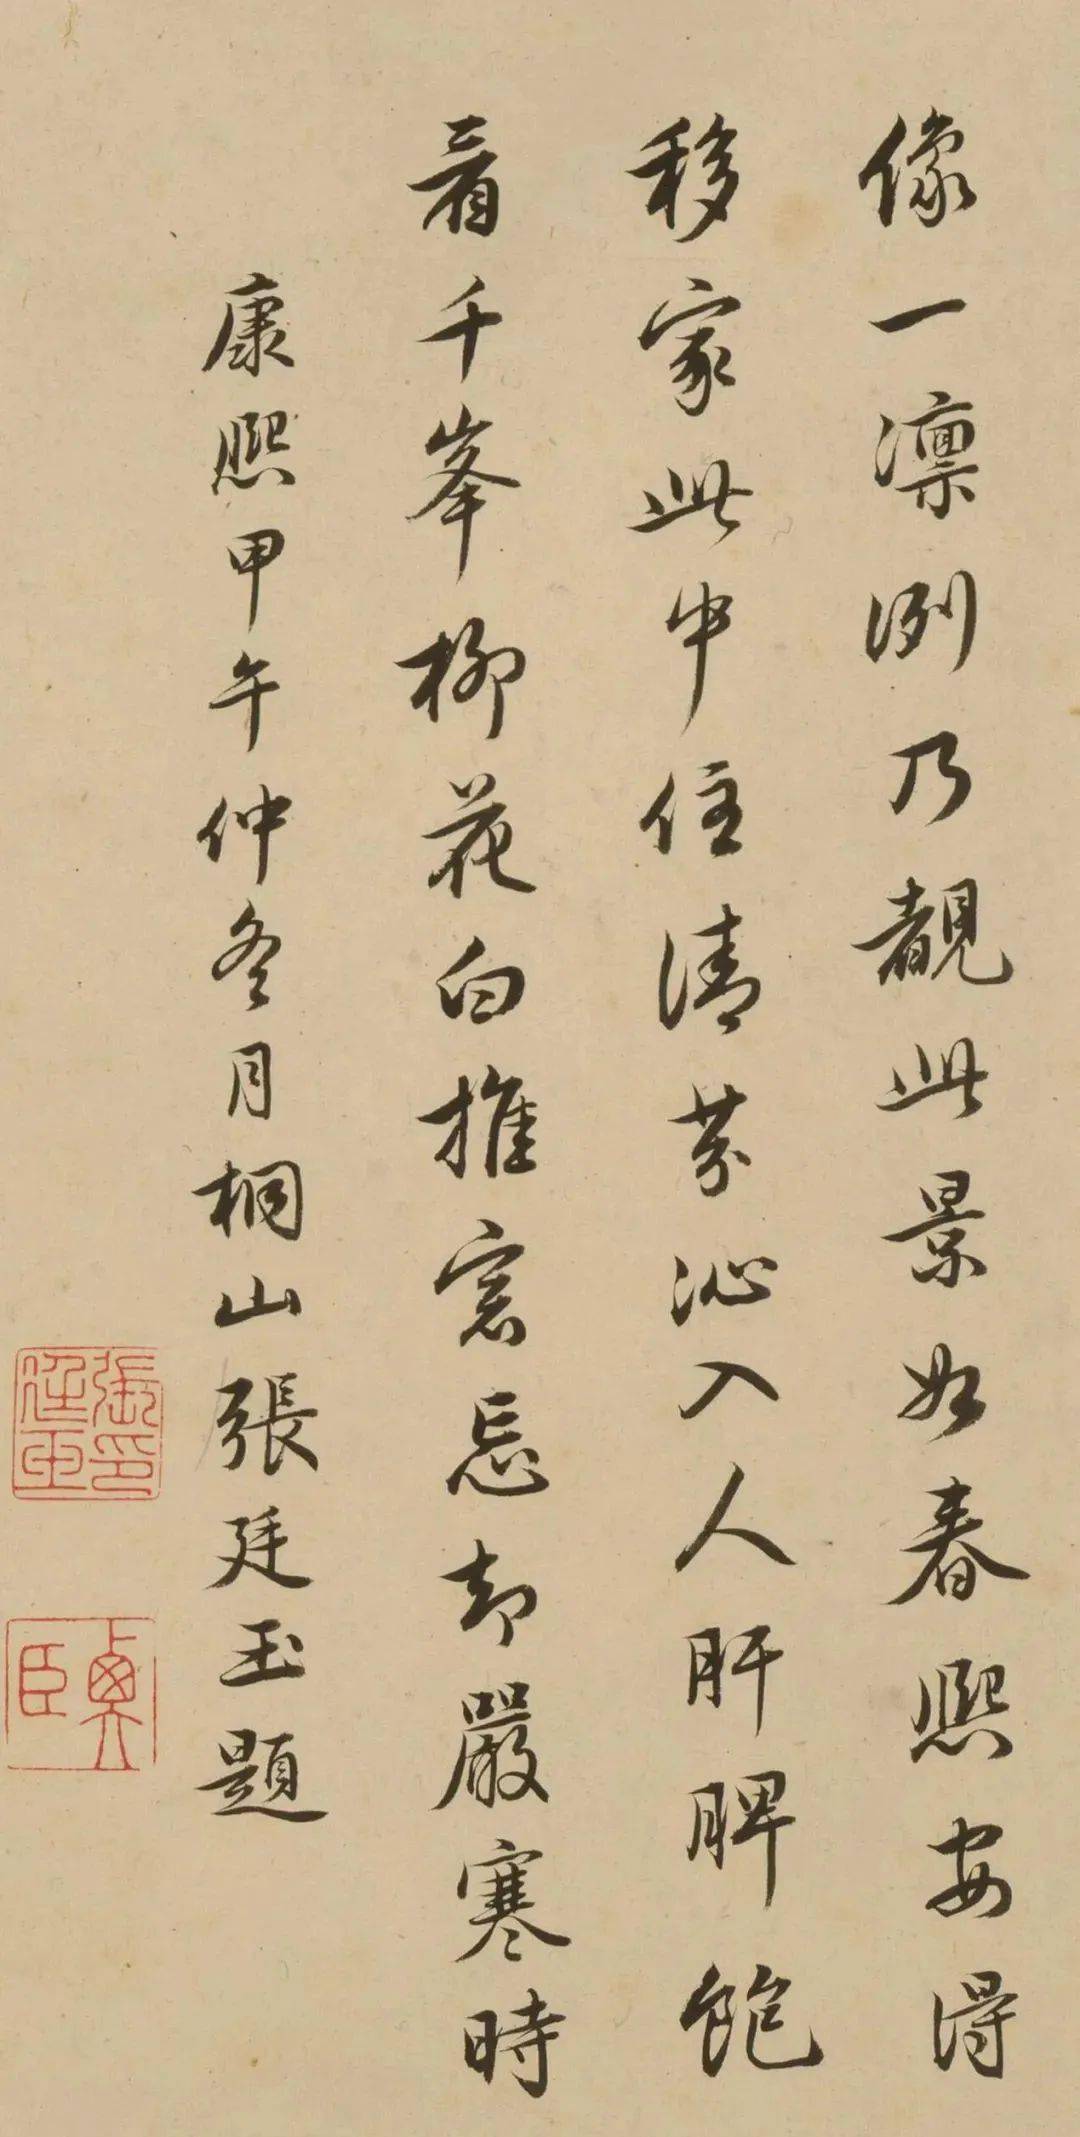 像一凛冽乃覩此景如春熙安得
移家此中住清芬沁入人肝脾飽
看千峯柳花白推窓忘却嚴寒時
康熙甲午仲冬月桐山張廷玉題
張廷玉印
臣